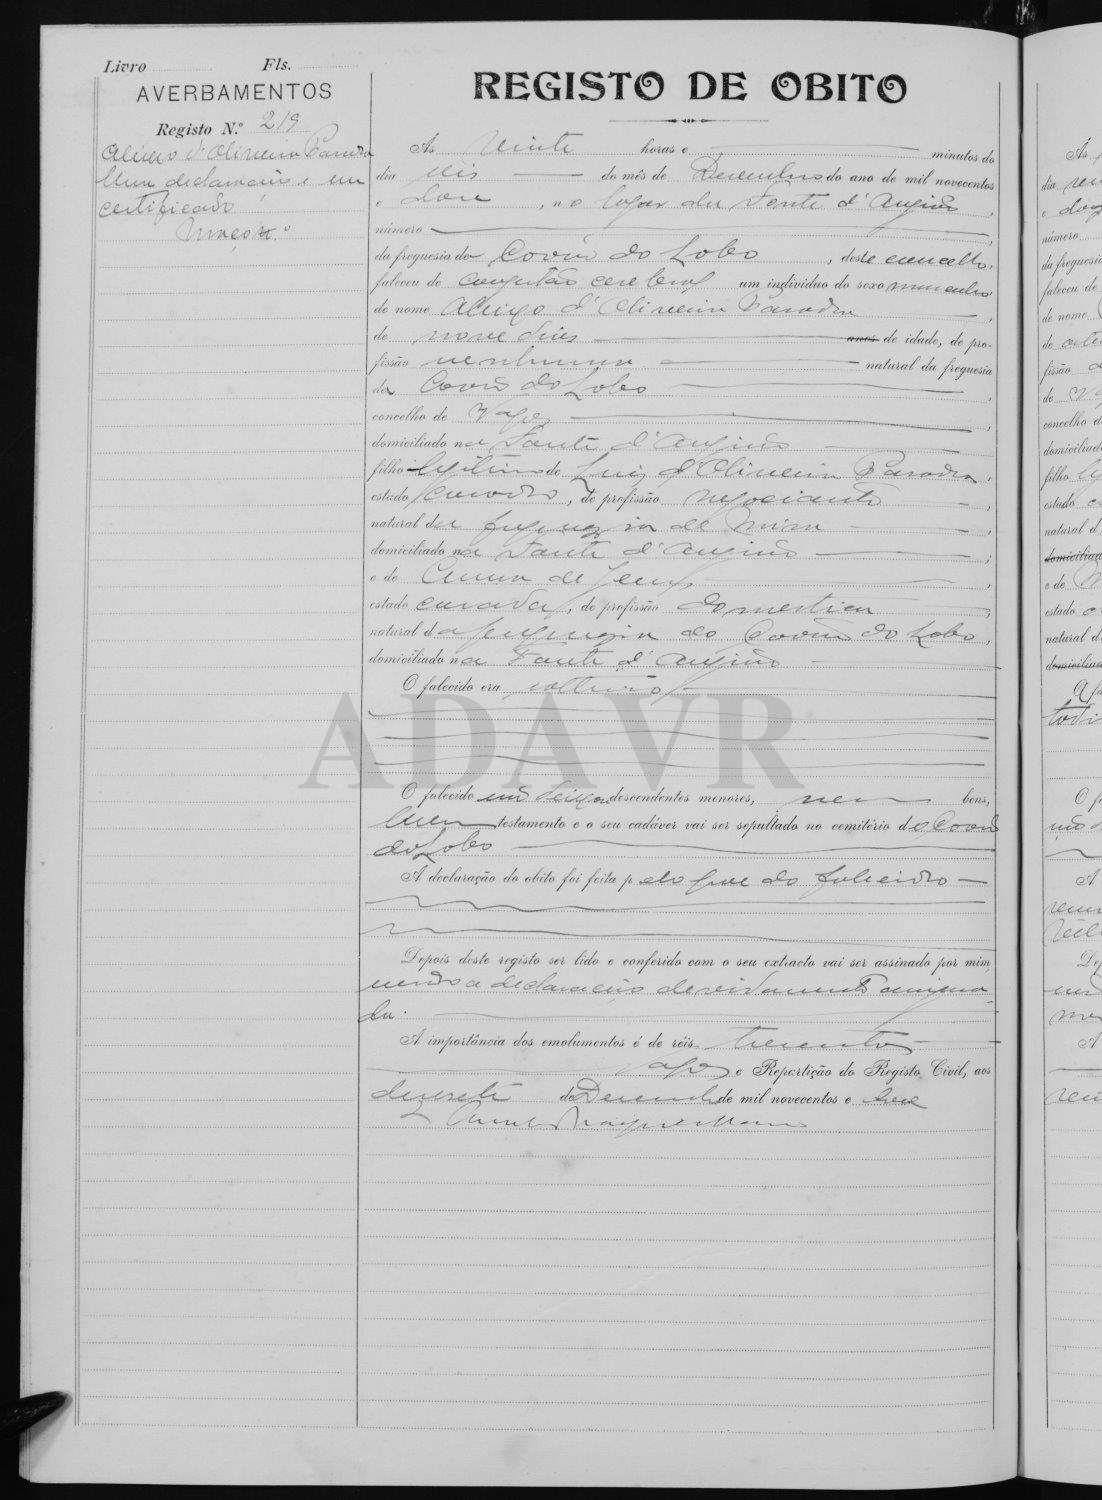 Livro Fls.
AVERBAMENTOS
Registo N.º 219
d'Oliveira
declaração e um
certificado
REGISTO DE OBITO
As vinte horas e minutos do
dia seis do mês de Dezembro do ano de mil novecentos
e doze, no lugar da Fonte d'Angião,
número
da freguesia de Covão do Lobo, deste concelho,
faleceu de congestão cerebral um individuo do sexo masculino
de nome d'Oliveira
de nove dias anos de idade, de pro-
fissão nenhuma natural da freguesia
do Covão do Lobo,
concelho de Vagos,
domiciliado na Fonte d'Angião
filho legitimo de Luiz d'Oliveira,
estado casado, de profissão negociante,
natural da freguezia de Mira,
domiciliado na Fonte d'Angião;
e de de Jesus,
estado casada, de profissão domestica,
natural da freguezia do Covão do Lobo,
domiciliado na Fonte d'Angião
O falecido era solteiro
ADAVR
O falecido não deixou descendentes menores, nem bens,
nem testamento e o seu cadáver vai ser sepultado no cemitério do Covão
do Lobo
A declaração do obito foi feita pelo pae do falecido
Depois deste registo ser lido e conferido com o seu extracto vai ser assinado por mim,
sendo a declaração devidamente
A importância dos emolumentos é de réis trezentos
Vagos e Repartição do Registo Civil, aos
dezesete de Dezembro de mil novecentos e doze